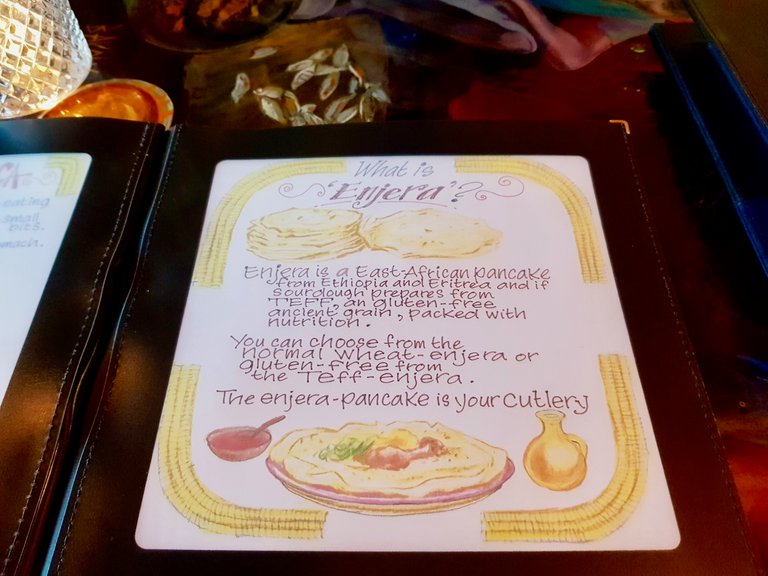 CA
eating
small
bits.
mach.
What is
'Enjera'?
Enjera is a East-African pancake
from Ethiopia and Eritrea and if
sourdough prepares from
TEFF, an gluten-free
ancient grain, packed with
nutrition.
You can choose from the
normal wheat-enjera or
gluten-free from
the Teff-enjera.
The enjera-pancake is your cutlery